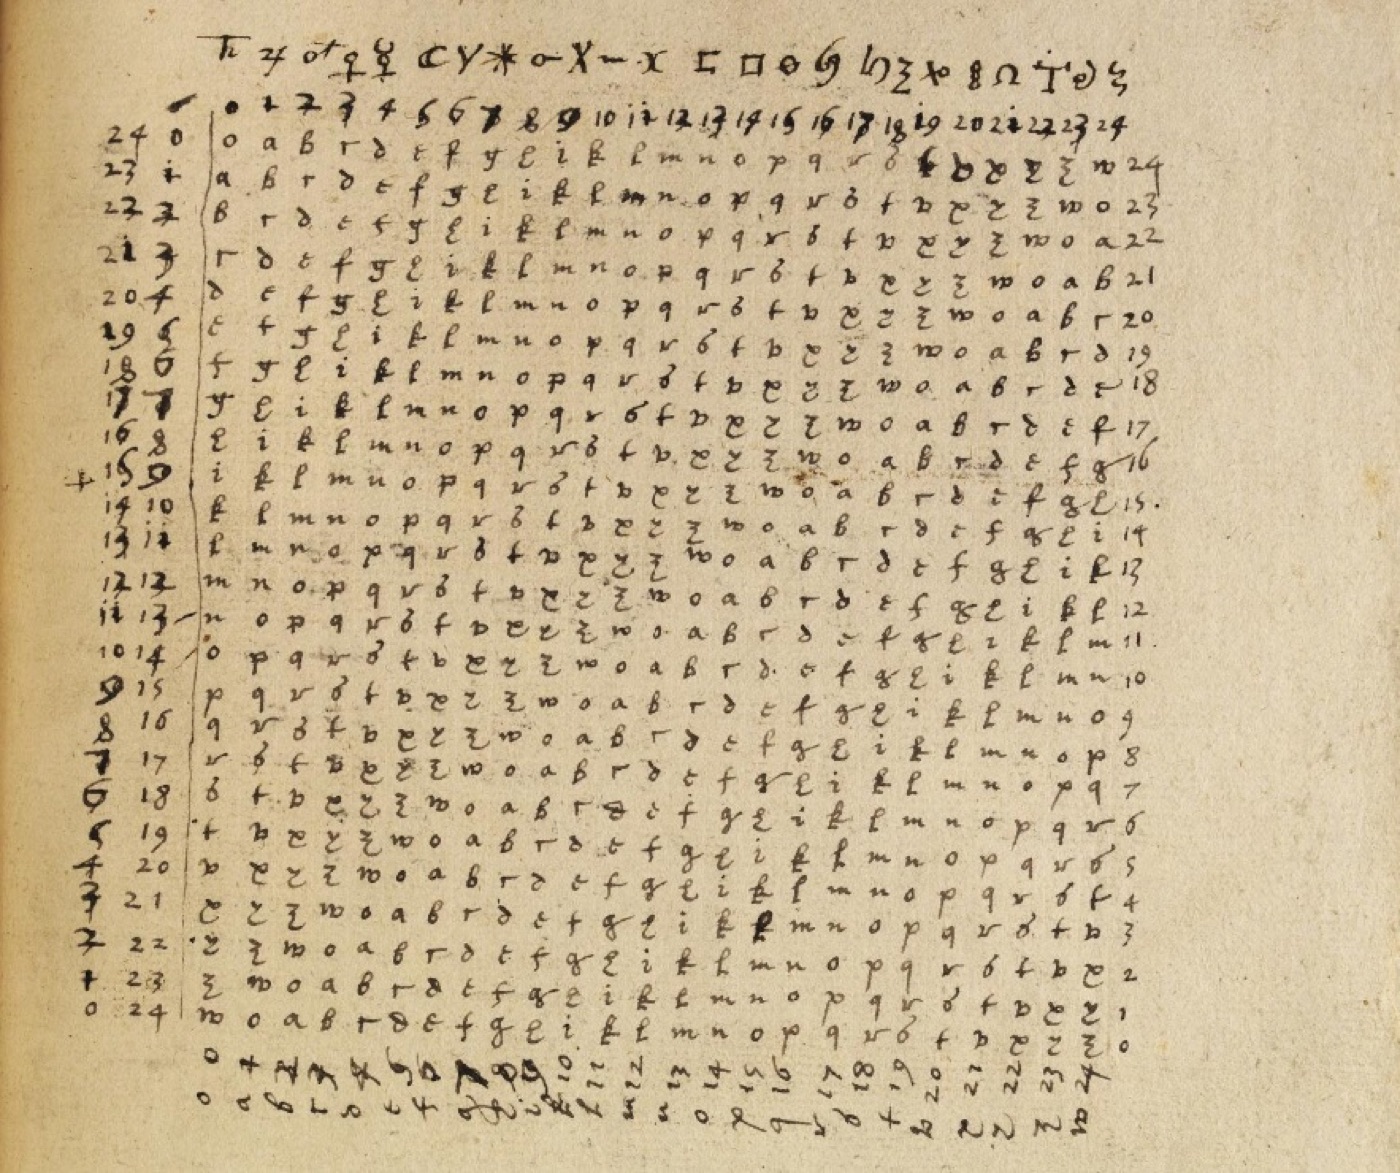 ♄ ♃ ♂ ♀ ☿ ☾ Y * X □ ♌
0 1 2 3 4 5 6 7 8 9 10 11 12 13 14 15 16 17 18 19 20 21 22 23 24
24 0 o a b c d e f g h i k l m n o p q r s t v x y z w 24
23 1 a b c d e f g h i k l m n o p q r s t v x y z w o 23
22 2 b c d e f g h i k l m n o p q r s t v x y z w o a 22
21 3 c d e f g h i k l m n o p q r s t v x y z w o a b 21
20 4 d e f g h i k l m n o p q r s t v x y z w o a b c 20
19 5 e f g h i k l m n o p q r s t v x y z w o a b c d 19
18 6 f g h i k l m n o p q r s t v x y z w o a b c d e 18
17 7 g h i k l m n o p q r s t v x y z w o a b c d e f 17
16 8 h i k l m n o p q r s t v x y z w o a b c d e f g 16
+ 15 9 i k l m n o p q r s t v x y z w o a b c d e f g h 15.
14 10 k l m n o p q r s t v x y z w o a b c d e f g h i 14
13 11 l m n o p q r s t v x y z w o a b c d e f g h i k 13
12 12 m n o p q r s t v x y z w o a b c d e f g h i k l 12
11 13 n o p q r s t v x y z w o a b c d e f g h i k l m 11.
10 14 o p q r s t v x y z w o a b c d e f g h i k l m n 10
9 15 p q r s t v x y z w o a b c d e f g h i k l m n o 9
8 16 q r s t v x y z w o a b c d e f g h i k l m n o p 8
7 17 r s t v x y z w o a b c d e f g h i k l m n o p q 7
6 18 s t v x y z w o a b c d e f g h i k l m n o p q r 6
5 19 t v x y z w o a b c d e f g h i k l m n o p q r s 5
4 20 v x y z w o a b c d e f g h i k l m n o p q r s t 4
3 21 x y z w o a b c d e f g h i k l m n o p q r s t v 3
2 22 y z w o a b c d e f g h i k l m n o p q r s t v x 2
1 23 z w o a b c d e f g h i k l m n o p q r s t v x y 1
0 24 w o a b c d e f g h i k l m n o p q r s t v x y z 0
0 1 2 3 4 5 6 7 8 9 10 11 12 13 14 15 16 17 18 19 20 21 22 23 24
o a b c d e f g h i k l m n o p q r s t v x y z w